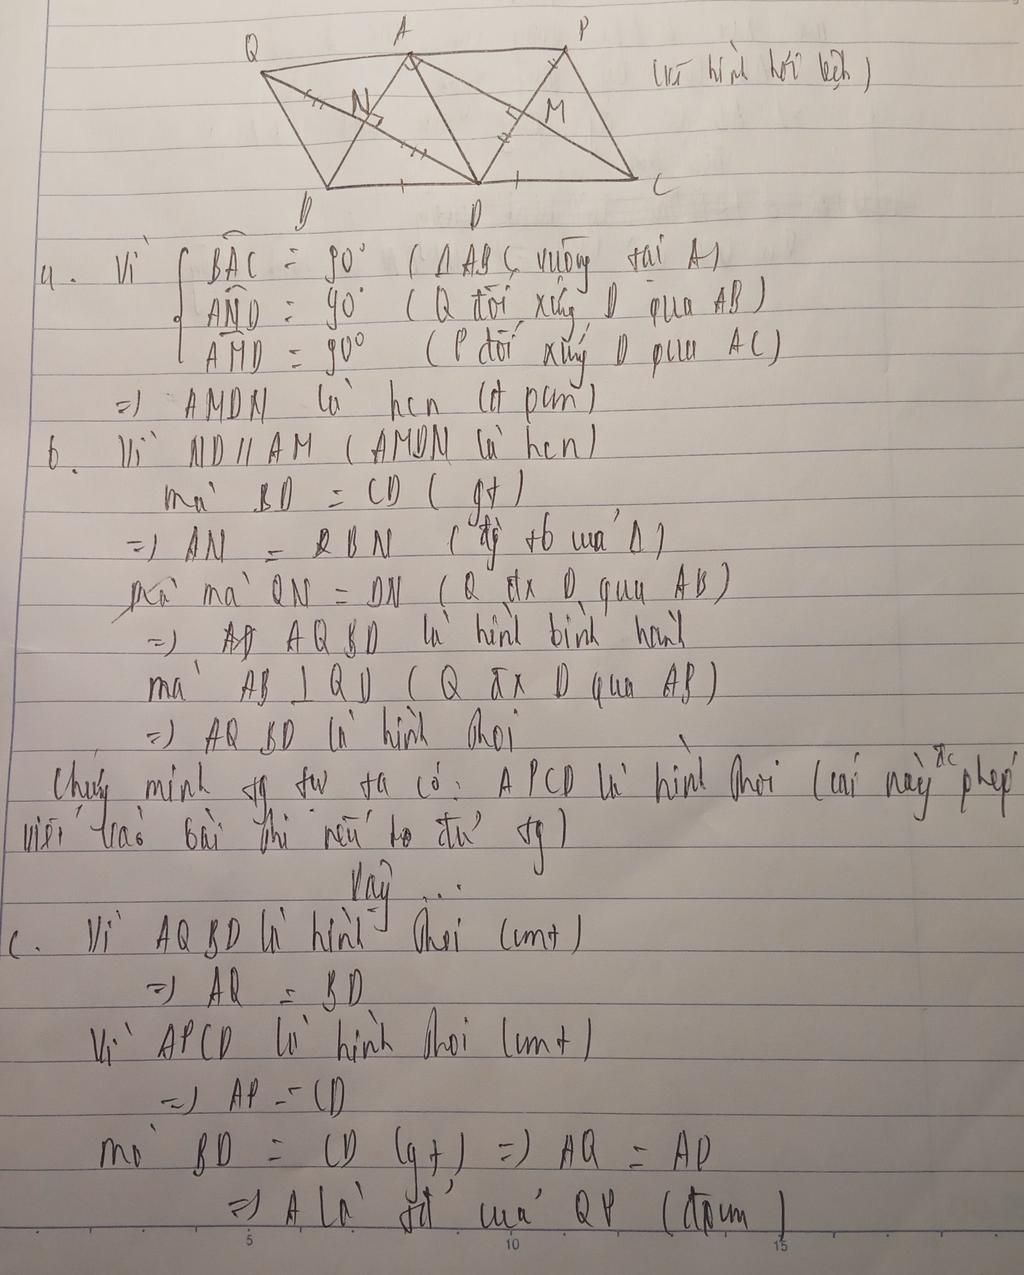 Q A P
(vẽ hình hơi lệch)
N M
B D C
a. Vì BAC = 90° (Δ ABC vuông tại A)
AND = 90° (Q đối xứng D qua AB)
AMD = 90° (P đối xứng D qua AC)
=> AMDN là hcn (đpcm)
b. Vì ND // AM (AMDN là hcn)
mà BD = CD (gt)
=> AN = BN (đg tb của Δ)
mà QN = DN (Q đx D qua AB)
=> AQBD là hình bình hành
mà AB ⊥ QD (Q đx D qua AB)
=> AQBD là hình thoi
Chứng minh tg tự ta có: APCD là hình thoi (cái này đc phép
viết vào bài thi nếu nó tg tự)
Vậy ...
c. Vì AQBD là hình thoi (cmt)
=> AQ = BD
Vì APCD là hình thoi (cmt)
=> AP = CD
mà BD = CD (gt) => AQ = AP
=> A là tđ của QP (đpcm)
5 10 15